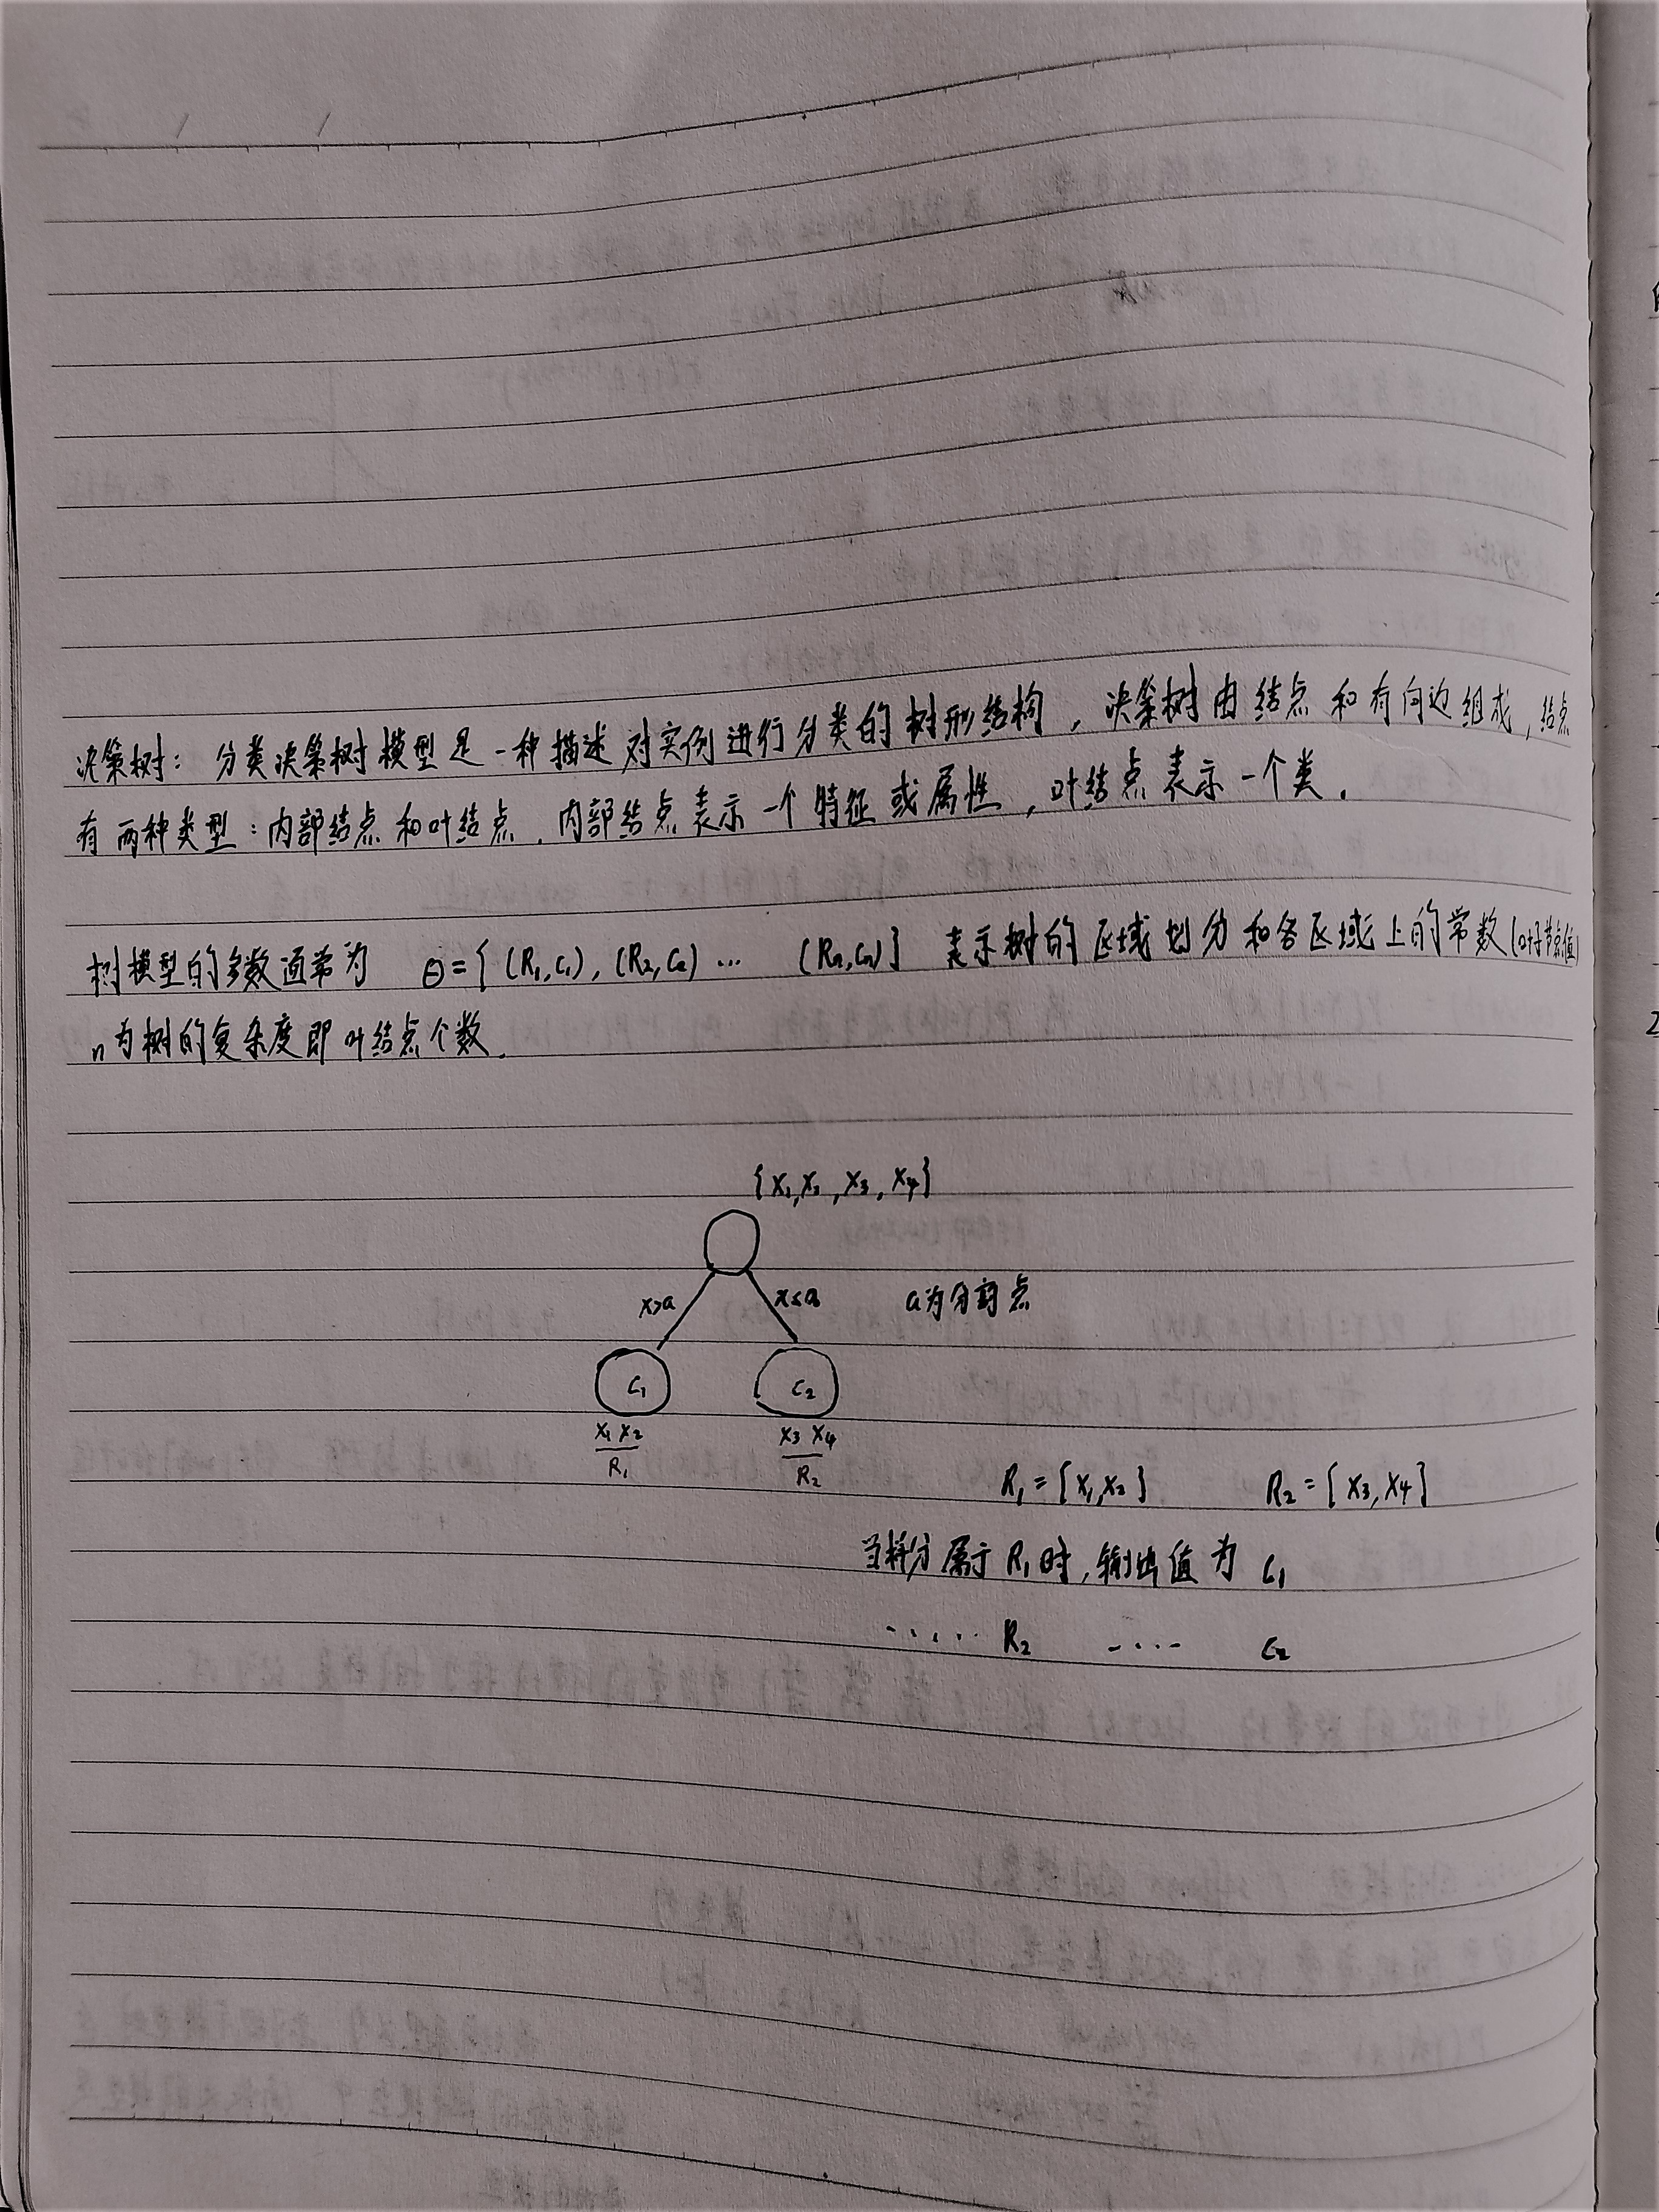 决策树：分类决策树模型是一种描述对实例进行分类的树形结构，决策树由结点和有向边组成，结点
有两种类型：内部结点和叶结点．内部结点表示一个特征或属性，叶结点表示一个类．
树模型的参数通常为 Θ={(R₁,C₁),(R₂,C₂)… (Rn,Cn)} 表示树的区域划分和各区域上的常数(叶子节点值)
n为树的复杂度即叶结点个数．
{x₁,x₂,x₃,x₄}
x>a x≤a a为分割点
C₁ C₂
x₁ x₂ x₃ x₄
R₁ R₂
R₁={x₁,x₂} R₂={x₃,x₄}
当样分属于R₁时,输出值为 C₁
····· R₂ ···· C₂